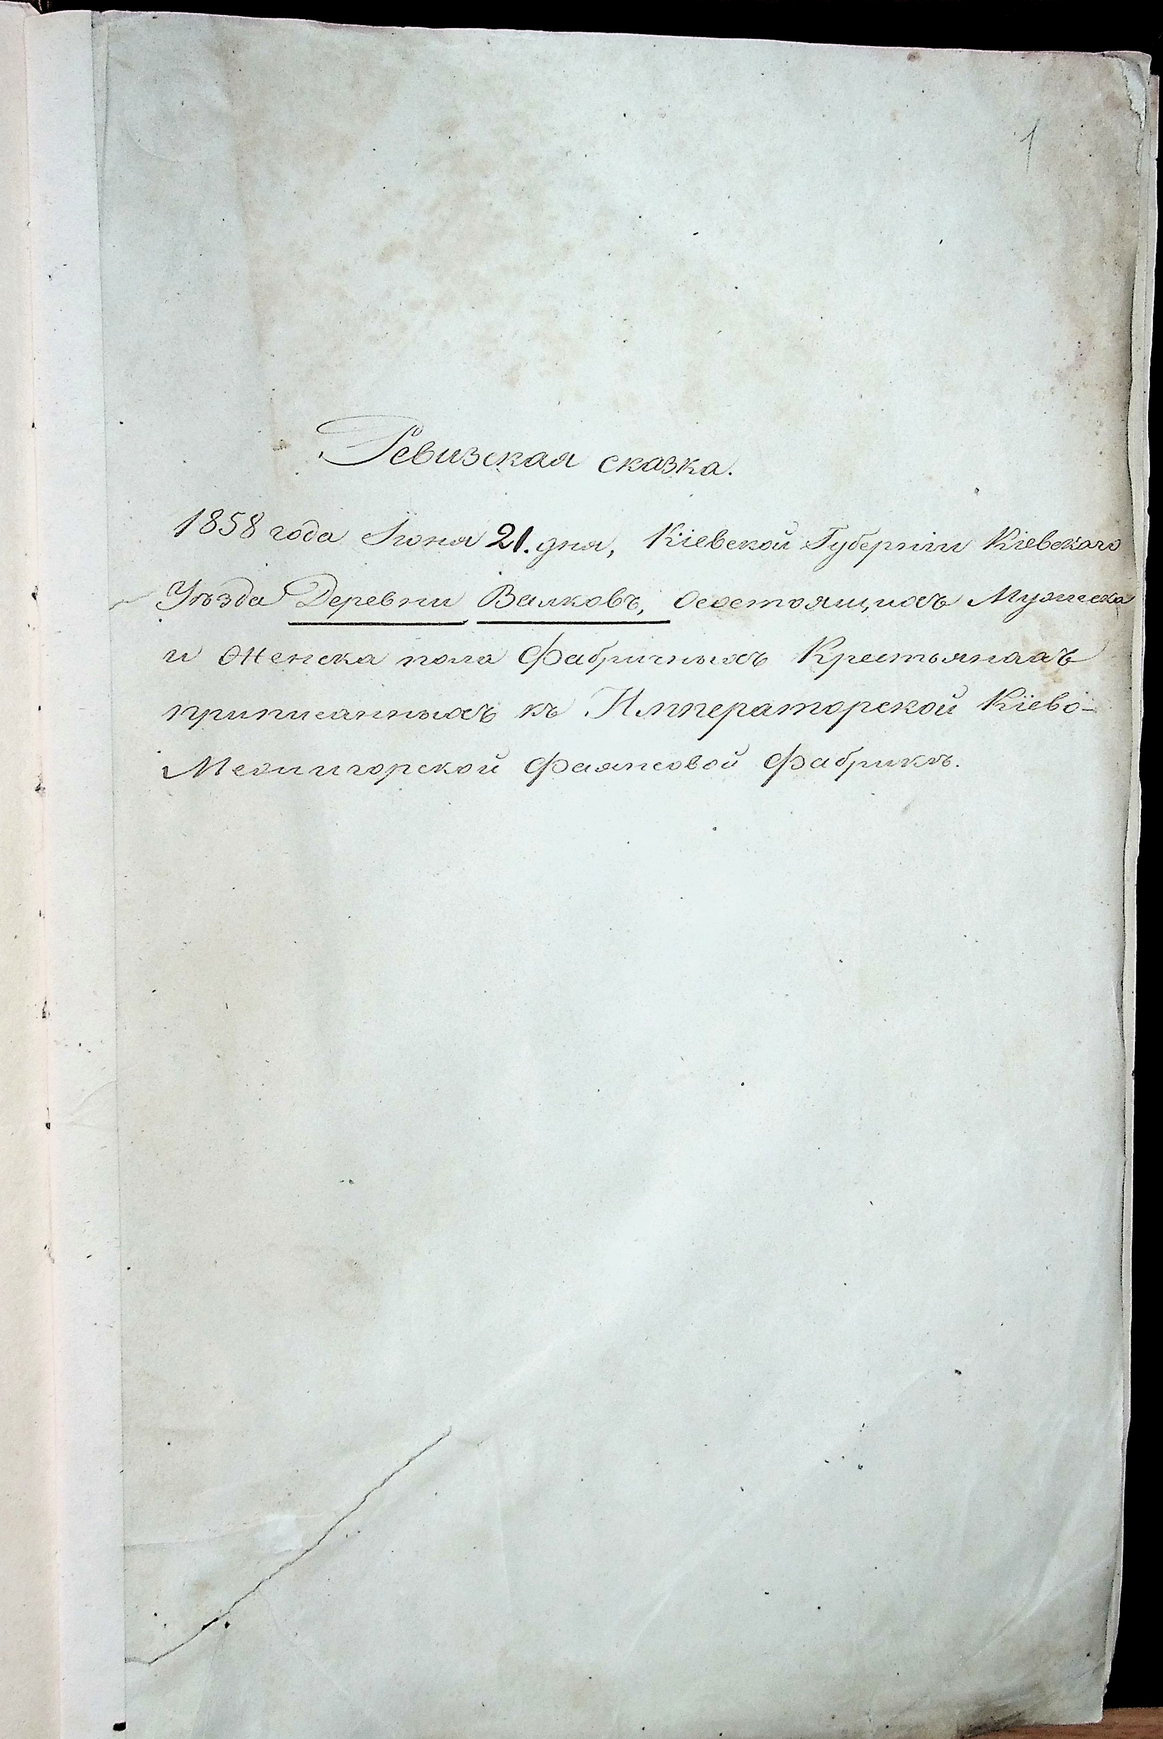 1
Ревизская сказка.
1858 года Іюня 21. дня, Кіевской Губерніи Кіевскаго
Уѣзда Деревни Валковъ, осостоящихъ Мужеска
и Женска пола Фабричныхъ Крестьянахъ
приписанныхъ къ Императорской Кіево-
Межигорской Фаянсовой Фабрикѣ.